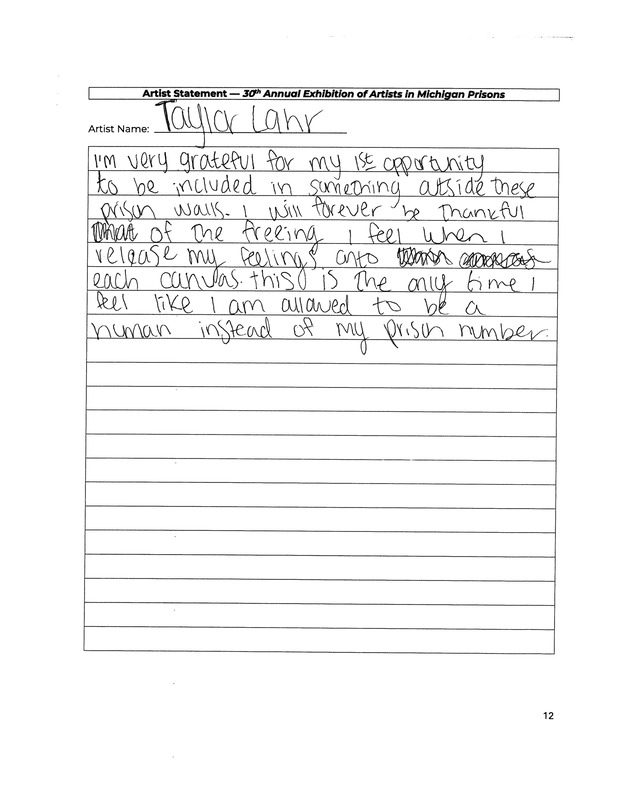 Artist Statement — 30th Annual Exhibition of Artists in Michigan Prisons
Artist Name: Taylor Lahr
I'm very grateful for my 1st opportunity
to be included in something outside these
prison walls. I will forever be thankful
of the freeing I feel when I
release my feelings onto
each canvas. this is the only time I
feel like I am allowed to be a
human instead of my prison number.
12